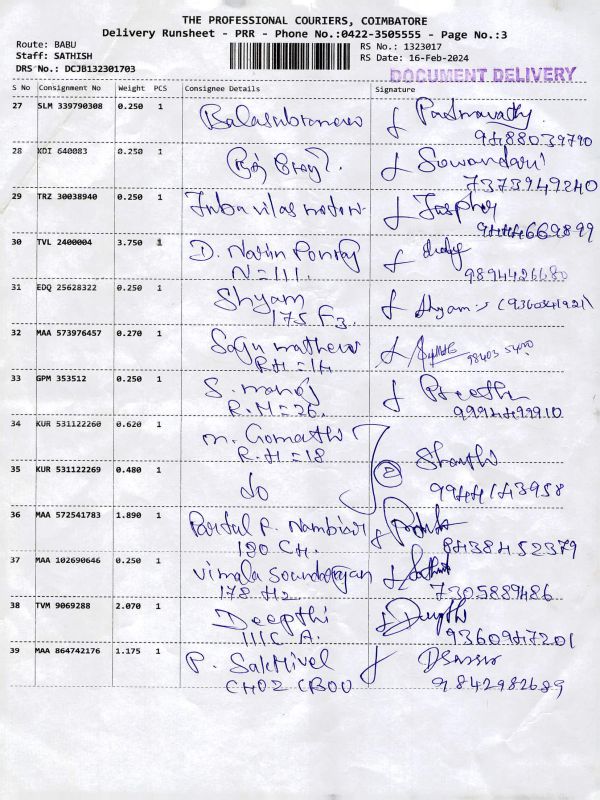 THE PROFESSIONAL COURIERS, COIMBATORE
Delivery Runsheet - PRR - Phone No.:0422-3505555 - Page No.:3
Route: BABU
Staff: SATHISH
DRS No.: DCJB132301703
RS No.: 1323017
RS Date: 16-Feb-2024
DOCUMENT DELIVERY
S No Consignment No Weight PCS Consignee Details Signature
27 SLM 339790308 0.250 1
9488039790
28 KDI 640083 0.250 1
7373949240
29 TRZ 30038940 0.250 1
30 TVL 2400004 3.750 1 D. Navin
N=111.
31 EDQ 25628322 0.250 1 Shyam Shyam
175 F3.
32 MAA 573976457 0.270 1 Saju mathew
R.H=14
33 GPM 353512 0.250 1 S. manoj Preethi
R.H=26. 9994499910
34 KUR 531122260 0.620 1 m. Gomathi
R.H=18
35 KUR 531122269 0.480 1 do 2
9944143958
36 MAA 572541783 1.890 1 P. Nambiar
190 CH. 8438452379
37 MAA 102690646 0.250 1 Vimala
178 H2 7305889486
38 TVM 9069288 2.070 1 Deepthi Deepthi
111C A. 9360947201
39 MAA 864742176 1.175 1 P. Sakthivel
9842982689